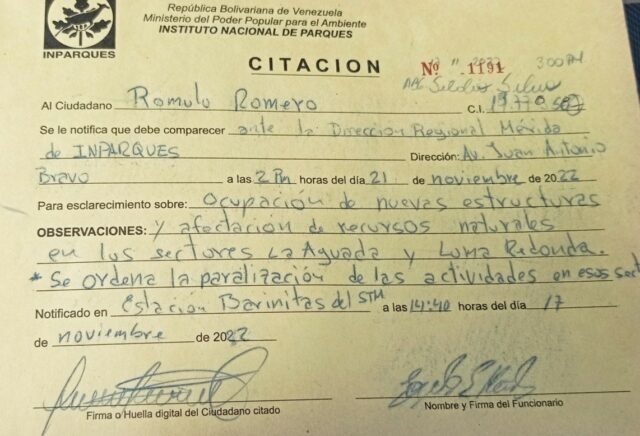 República Bolivariana de Venezuela
Ministerio del Poder Popular para el Ambiente
INSTITUTO NACIONAL DE PARQUES
INPARQUES
CITACION
Nº 1191
3:00 PM
Al Ciudadano Romulo Romero C.I. 19.770.
Se le notifica que debe comparecer ante la Direccion Regional Mérida
de INPARQUES Dirección: Av. Juan Antonio
Bravo a las 2 Pm horas del día 21 de noviembre de 2022
Para esclarecimiento sobre: Ocupación de nuevas estructuras
OBSERVACIONES: y afectación de recursos naturales
en los sectores La Aguada y Loma Redonda.
* Se ordena la paralización de las actividades en esos sect
Notificado en Estación Barinitas del STM a las 14:40 horas del día 17
de noviembre de 2022
Firma o Huella digital del Ciudadano citado
Nombre y Firma del Funcionario